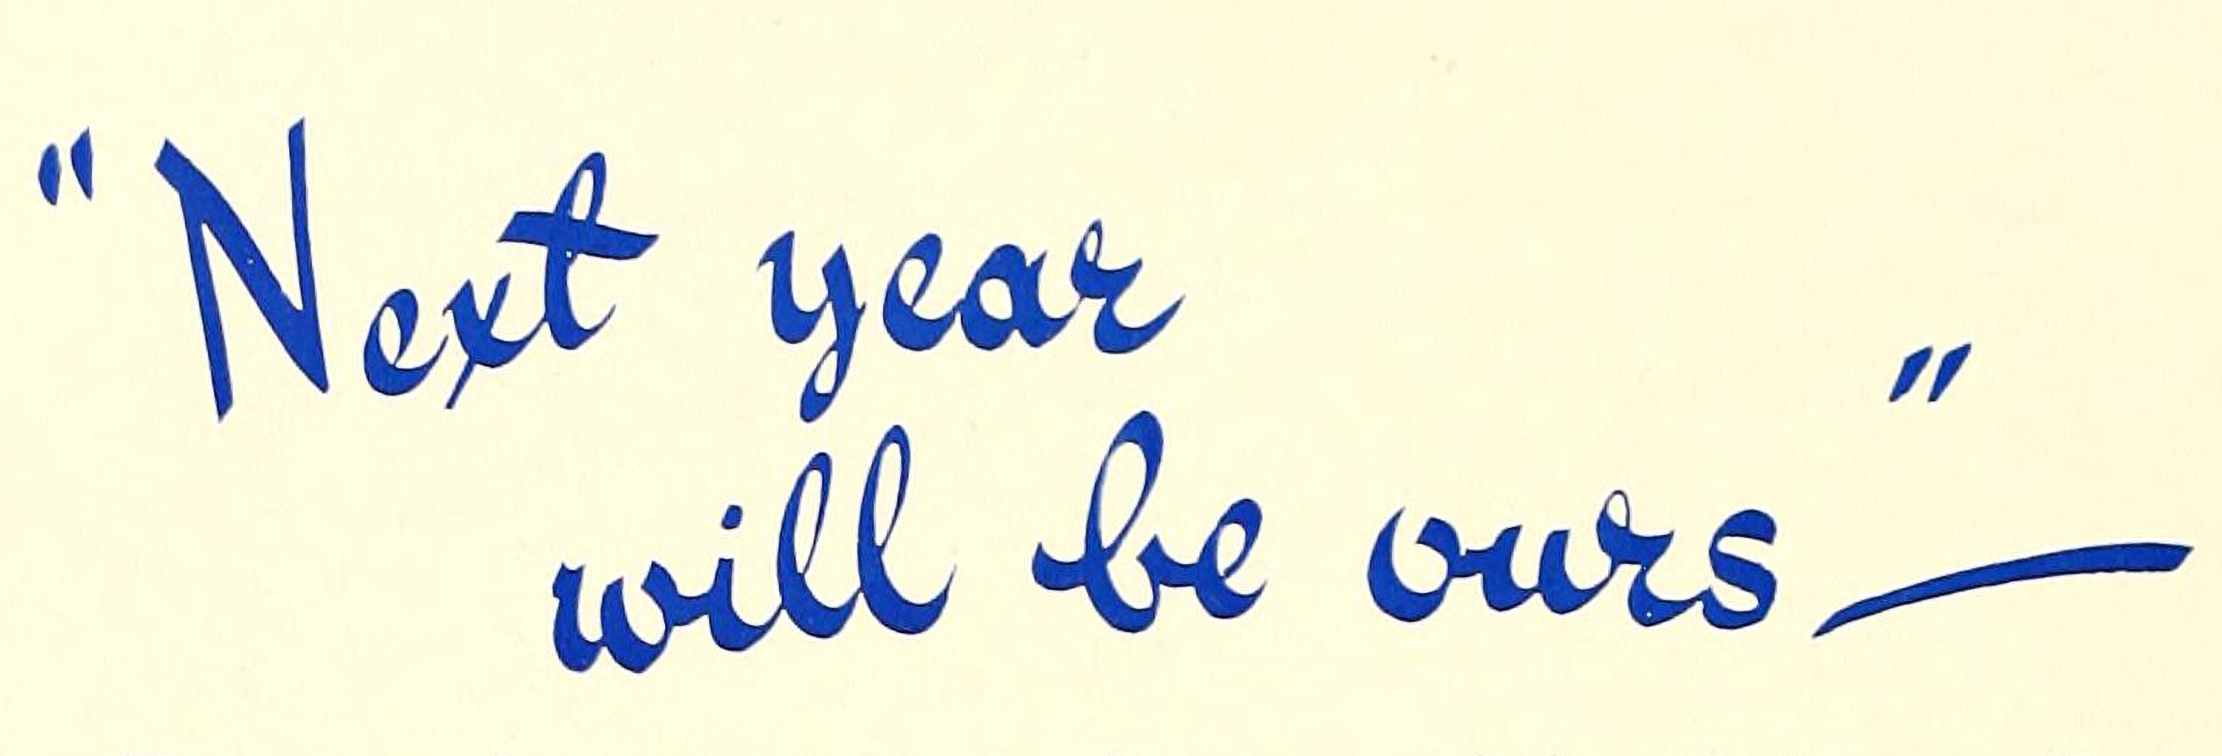 "Next year
will be ours—"